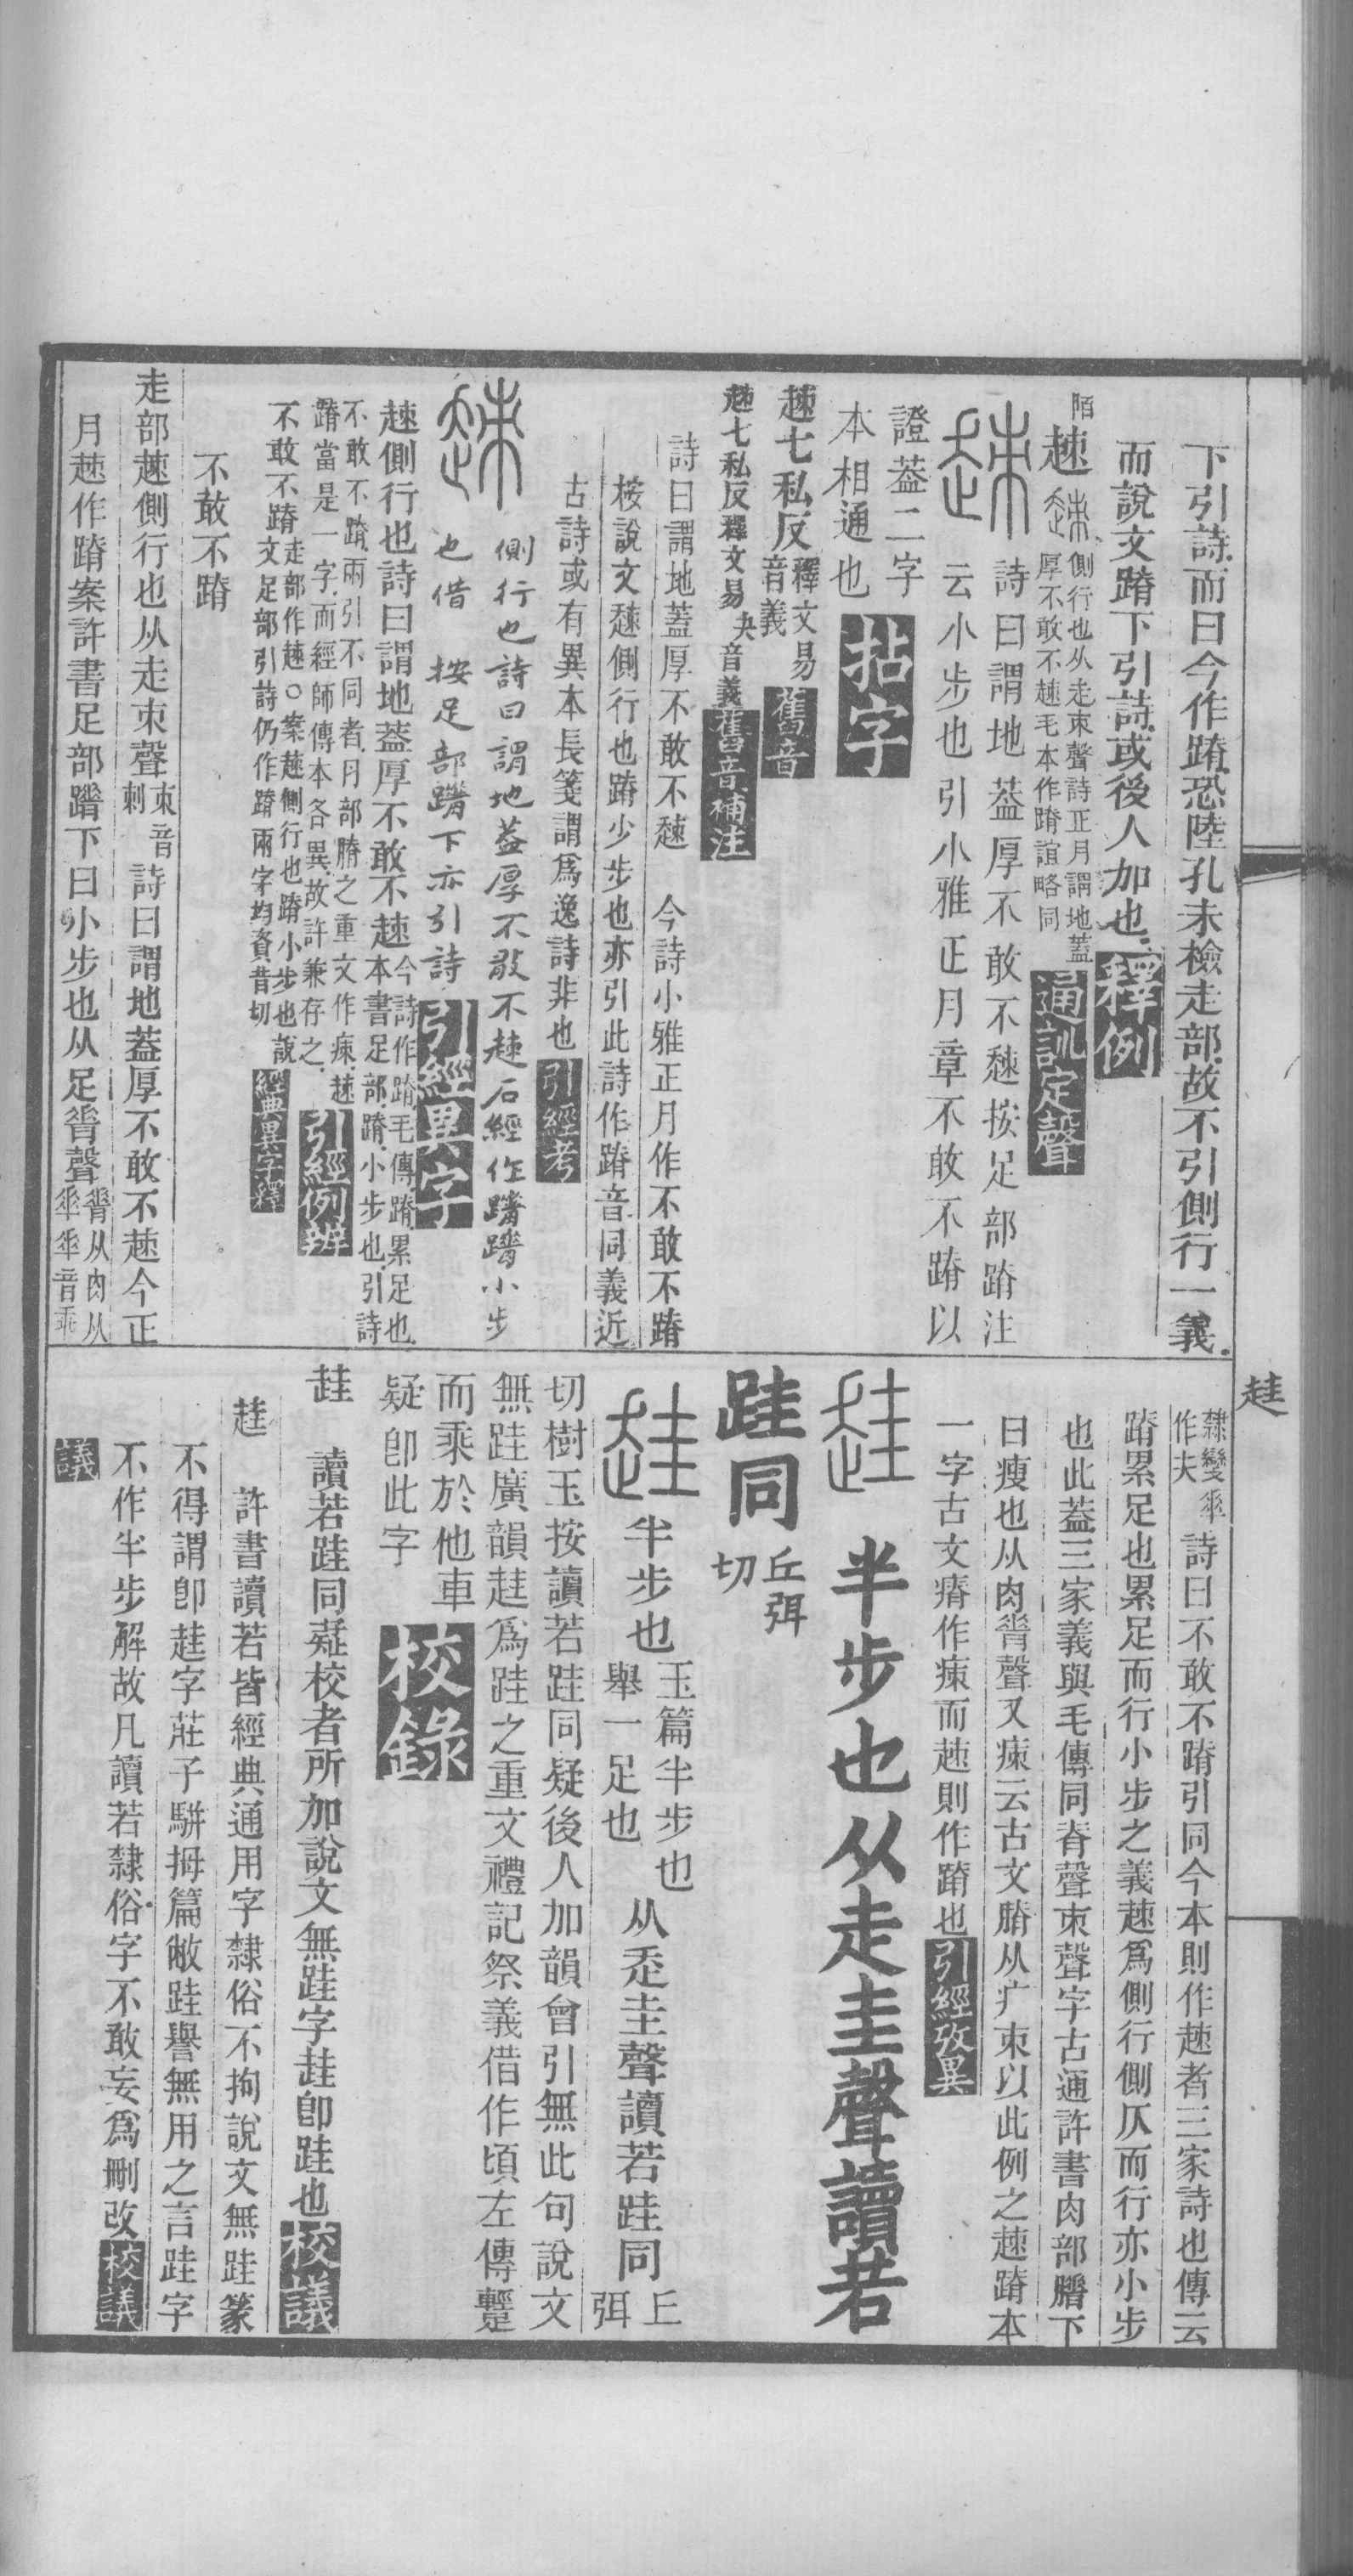 下引詩而曰今作蹐恐陸孔未檢走部故不引側行一義
而說文蹐下引詩或後人加也釋例
陌趚側行也从走朿聲詩正月謂地蓋
厚不敢不趚毛本作蹐誼略同通訓定聲
詩曰謂地蓋厚不敢不趚按足部蹐注
云小步也引小雅正月章不敢不蹐以
證蓋二字
本相通也拈字
趚七私反釋文易
音義舊音
趚七私反釋文易夬音義舊音補注
詩曰謂地蓋厚不敢不趚 今詩小雅正月作不敢不蹐
桉說文趚側行也蹐少步也亦引此詩作蹐音同義近
古詩或有異本長箋謂爲逸詩非也引經考
側行也詩曰謂地蓋厚不敢不趚石經作蹐蹐小步
也借 按足部蹐下亦引詩引經異字
趚側行也詩曰謂地蓋厚不敢不趚今詩作蹐毛傳蹐累足也
本書足部蹐小步也引詩
不敢不蹐兩引不同者肉部膌之重文作㾊趚
蹐當是一字而經師傳本各異故許兼存之引經例辨
不敢不蹐走部作趚○案趚側行也蹐小步也說
文足部引詩仍作蹐兩字均資昔切經典異字釋
不敢不蹐
走部趚側行也从走朿聲朿音
刺詩曰謂地蓋厚不敢不趚今正
月趚作蹐案許書足部蹐下曰小步也从足脊聲脊从肉从
𠦬𠦬音乖
趌
隸變𠦬
作夫詩曰不敢不蹐引同今本則作趚者三家詩也傳云
蹐累足也累足而行小步之義趚爲側行側仄而行亦小步
也此蓋三家義與毛傳同脊聲朿聲字古通許書肉部膌下
曰瘦也从肉脊聲又㾊云古文膌从疒朿以此例之趚蹐本
一字古文瘠作㾊而趚則作蹐也引經攷異
半步也从走圭聲讀若
跬同丘弭
切
半步也玉篇半步也
舉一足也从走圭聲讀若跬同丘
弭
切樹玉按讀若跬同疑後人加韻會引無此句說文
無跬廣韻趌爲跬之重文禮記祭義借作頃左傳鑋
而乘於他車
疑卽此字校錄
讀若跬同疑校者所加說文無跬字趌卽跬也校議
許書讀若皆經典通用字隸俗不拘說文無跬篆
不得謂卽趌字莊子駢拇篇敝跬譽無用之言跬字
不作半步解故凡讀若隸俗字不敢妄爲刪改校議
議